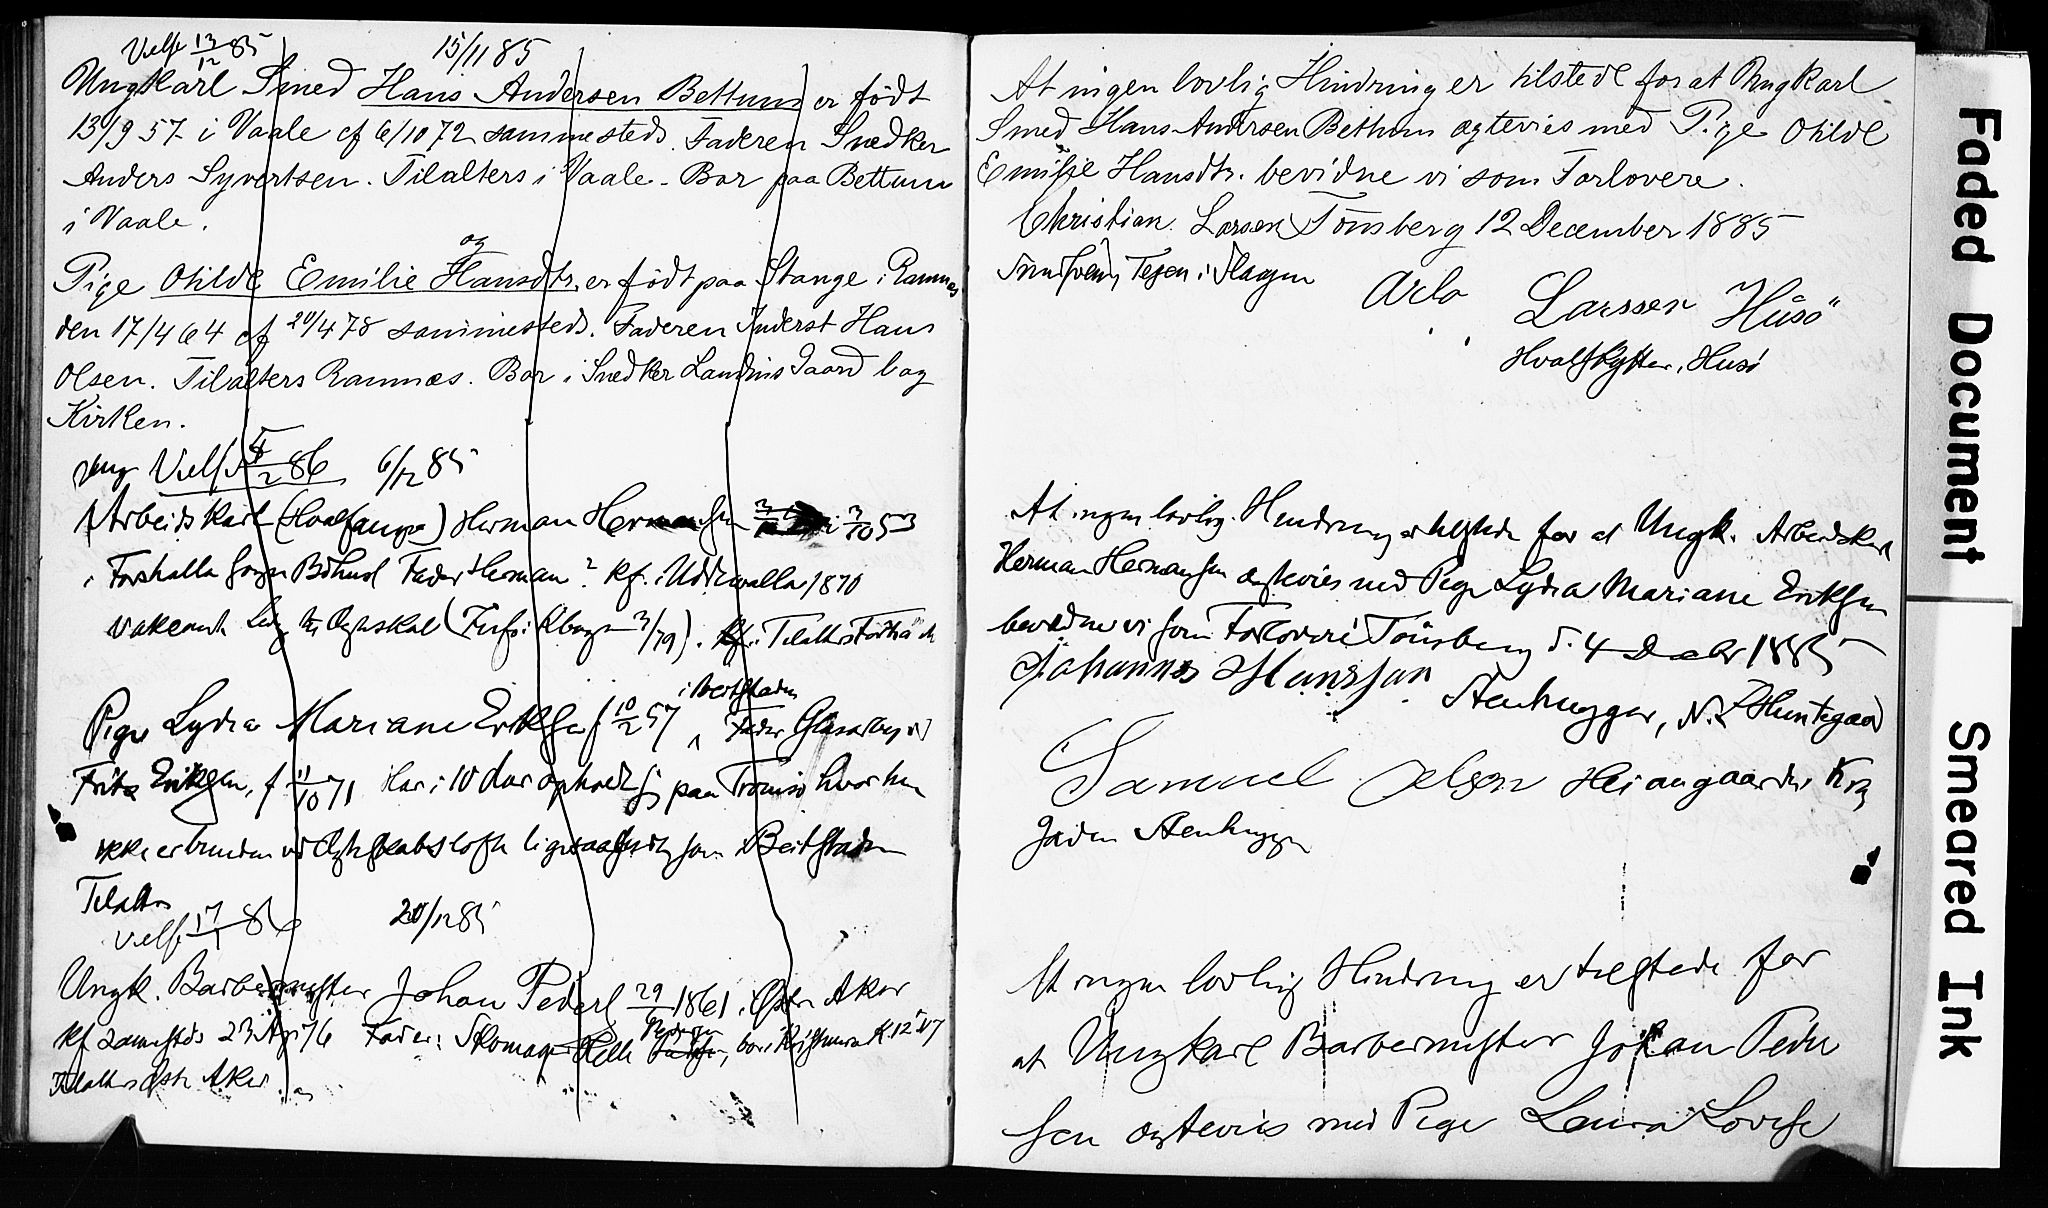 Vielse 13/12 85 15/11 85
Ungkarl Smed Hans Andersen Bettum er født
13/9 57 i Vaale cf 6/10 72 sammesteds. Faderen Snedker
Anders Syvertsen. Tilalters i Vaale. Bor paa Bettum
i Vaale.
og
Pige Otilde Emilie Hansdtr. er født paa Stange i Ramnes
den 17/4 64 cf 20/4 78 sammesteds. Faderen Inderst Hans
Olsen. Tilalters Ramnæs. Bor i Snedker Gaard bag
Kirken.
Vielse 86 6/12 85
Arbeidskarl (Hvalfanger) Herman Hermansen 3/10 53
i Forshalla Sogn Bohusl Fader Herman ? kf. i Uddevalla 1870
til Ægteskab 3/79). Tilalters
Pige Lydia Mariane Eriksen f 10/2 57 i Beitstaden Fader
Fritz Eriksen, f 11/10 71 Har i 10 Aar opholdt sig paa Tromsø hvor hun
ikke er bunden ved Ægteskabsløfte ligesaalidt som i Beitstaden
Tilalters
Vielse 17/1 86 20/12 85
Ungk. Barbermester Johan Peders 29/6 1861 i Østre Aker
kf sammesteds 23 Apr 76 Fader: Skomager Helle Pedersen, bor i Kristiania K 12 N 7
Tilalters Østre Aker. og
At ingen lovlig Hindring er tilstede for at Ungkarl
Smed Hans Andersen Bettum ægtevies med Pige Otilde
Emilie Hansdtr. bevidne vi som Forlovere.
Christian Larsen Tönsberg 12 December 1885
Smedsvend, Tejen i Slagen
Arlo Larssen Húsö
Hvalskytter, Husö
At ingen lovlig Hindring er tilstede for at Ungk. Arbeidskarl
Herman Hermansen ægtevies med Pige Lydia Mariane Eriksen
bevidne vi som Forlovere Tönsberg d. 4 Decbr 1885
Johannes Hansson
Stenhugger, N.
Samuel Olsen
Stenhugger
At ingen lovlig Hindring er tilstede for
at Ungkarl Barbermester Johan Peder
sen ægtevies med Pige Laura Lovise
Faded Document
Smeared Ink